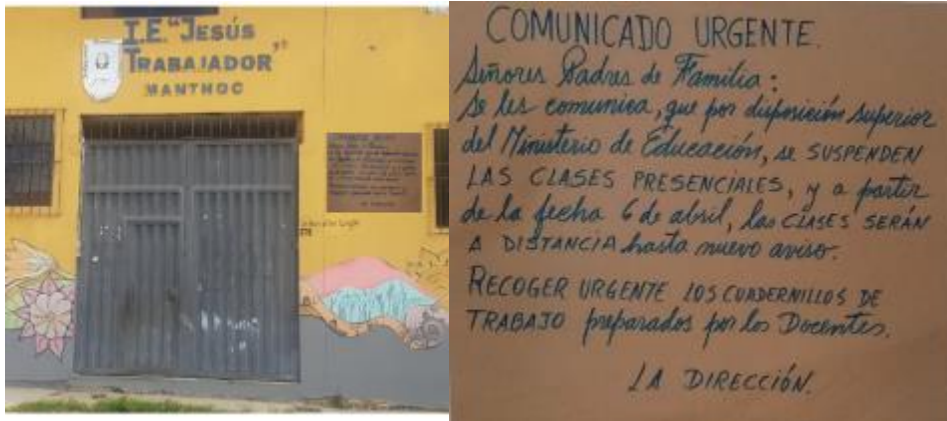 I.E. "JESÚS
TRABAJADOR"
MANTHOC
COMUNICADO URGENTE.
Señores Padres de Familia:
Se les comunica, que por disposición superior
del Ministerio de Educación, se SUSPENDEN
LAS CLASES PRESENCIALES, y a partir
de la fecha 6 de abril, las CLASES SERÁN
A DISTANCIA hasta nuevo aviso.
RECOGER URGENTE LOS CUADERNILLOS DE
TRABAJO preparados por los Docentes.
LA DIRECCIÓN.